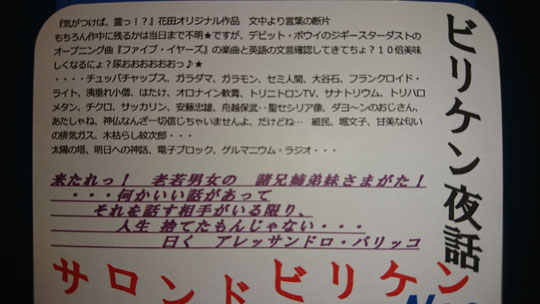 『気がつけば、霊っ！？』花田オリジナル作品　文中より言葉の断片
もちろん作中に残るかは当日まで不明★ですが、デビット・ボウイのジギースターダストの
オープニング曲『ファイブ・イヤーズ』の楽曲と英語の文言確認してきてちょ？１０倍美味
しくなるにょ？尿おおおおおおっ♪★
・・・・チュッパチャップス、ガラダマ、ガラモン、セミ人間、大谷石、フランクロイド・
ライト、洟垂れ小僧、はたけ、オロナイン軟膏、トリニトロンTV、サナトリウム、トリハロ
メタン、チクロ、サッカリン、安藤忠雄、舟越保武‥聖セシリア像、ダヨ～ンのおじさん、
あたしゃね、神仏なんざ一切信じちゃいませんよ、だけどね…　細民、堀文子、甘美な匂い
の排気ガス、木枯らし紋次郎・・・
太陽の塔、明日への神話、電子ブロック、ゲルマニウム・ラジオ・・・
来たれっ！　老若男女の　諸兄姉弟妹さまがた！
・・・何かいい話があって
それを話す相手がいる限り、
人生 捨てたもんじゃない・・・
曰く　アレッサンドロ・バリッコ
サロンドビリケン
ビリケン夜話